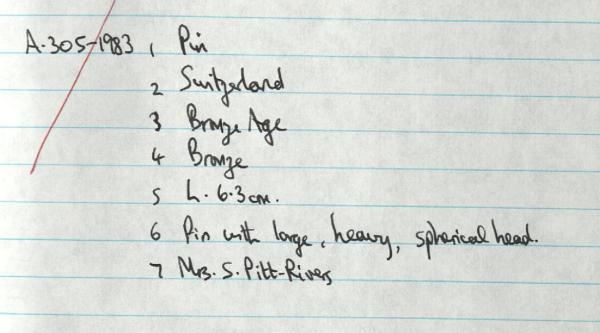 A.305-1983 1 Pin
2 Switzerland
3 Bronze Age
4 Bronze
5 L. 6.3cm.
6 Pin with large, heavy, spherical head.
7 Mrs. S. Pitt-Rivers